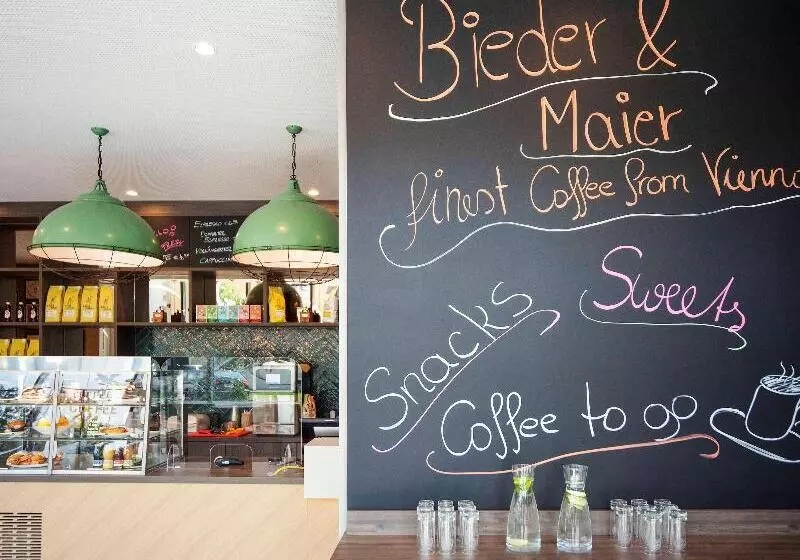 Bieder &
Maier
finest Coffee from Vienna
Sweets
Snacks
Coffee to go
Espresso
Cappuccino